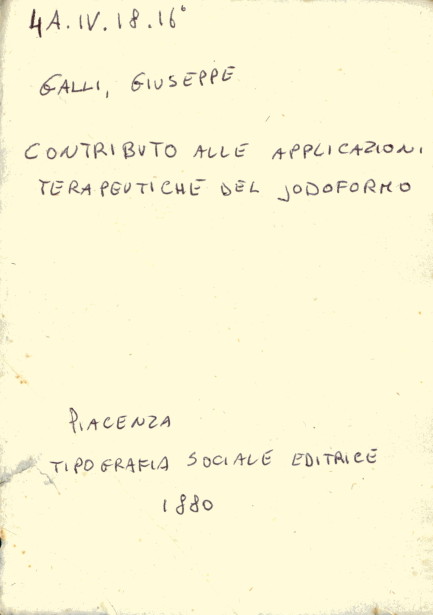 4A.IV.18.16°
GALLI, GIUSEPPE
CONTRIBUTO ALLE APPLICAZIONI
TERAPEUTICHE DEL JODOFORMO
PIACENZA
TIPOGRAFIA SOCIALE EDITRICE
1880